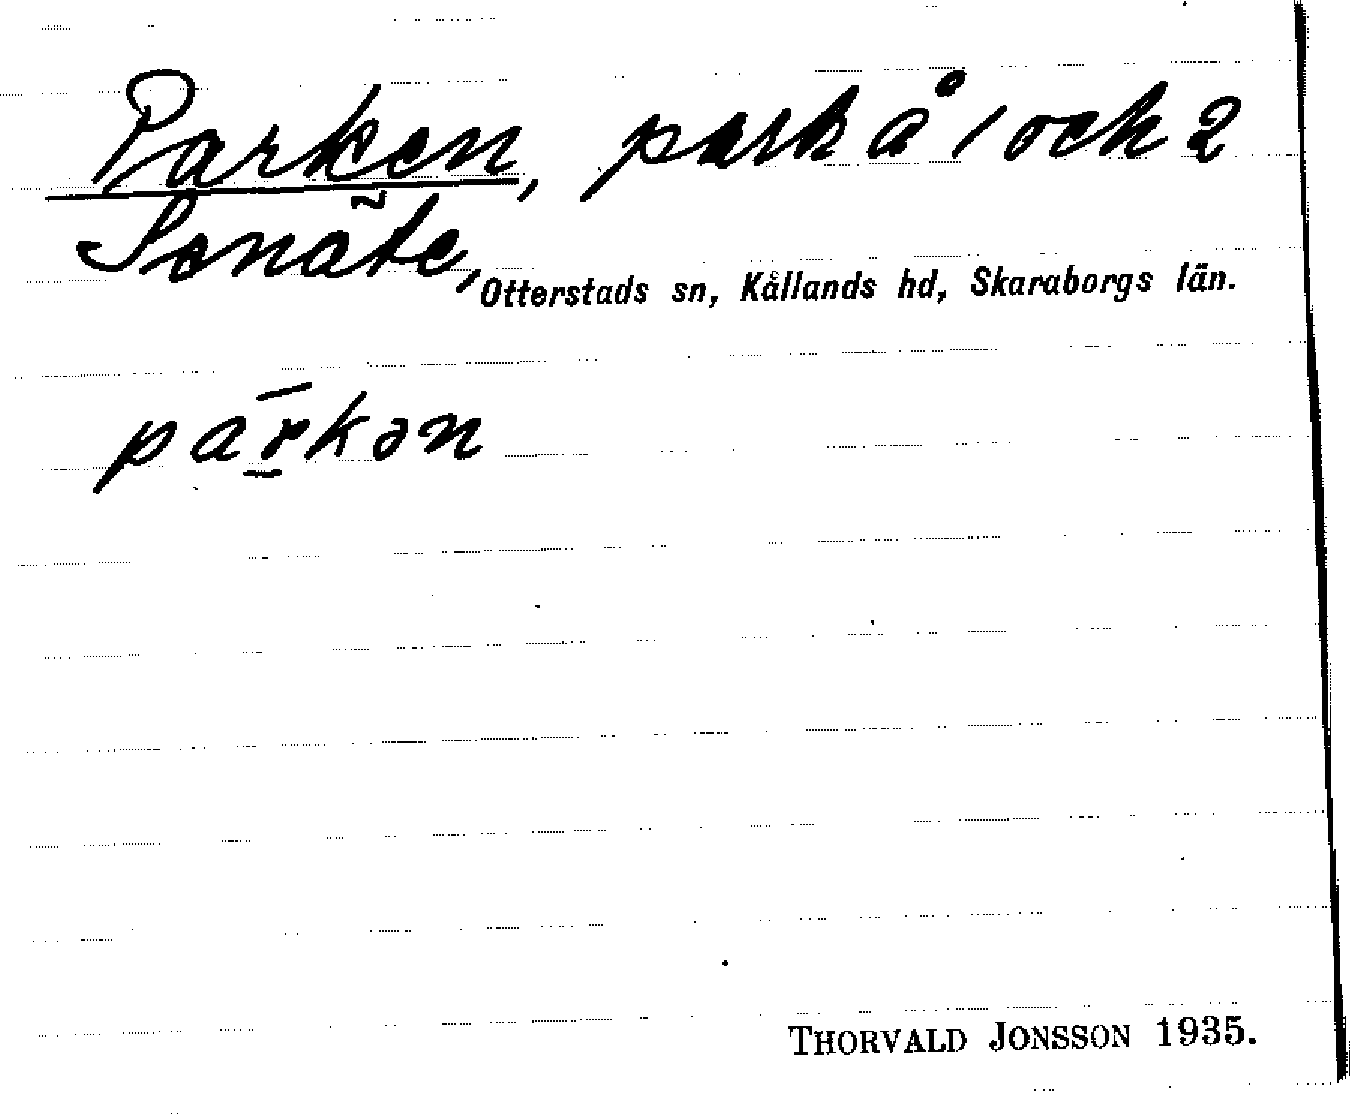 Parken, park å 1 och 2
Senäte,
Otterstads sn, Kållands hd, Skaraborgs län.
pārkən
THORVALD JONSSON 1935.